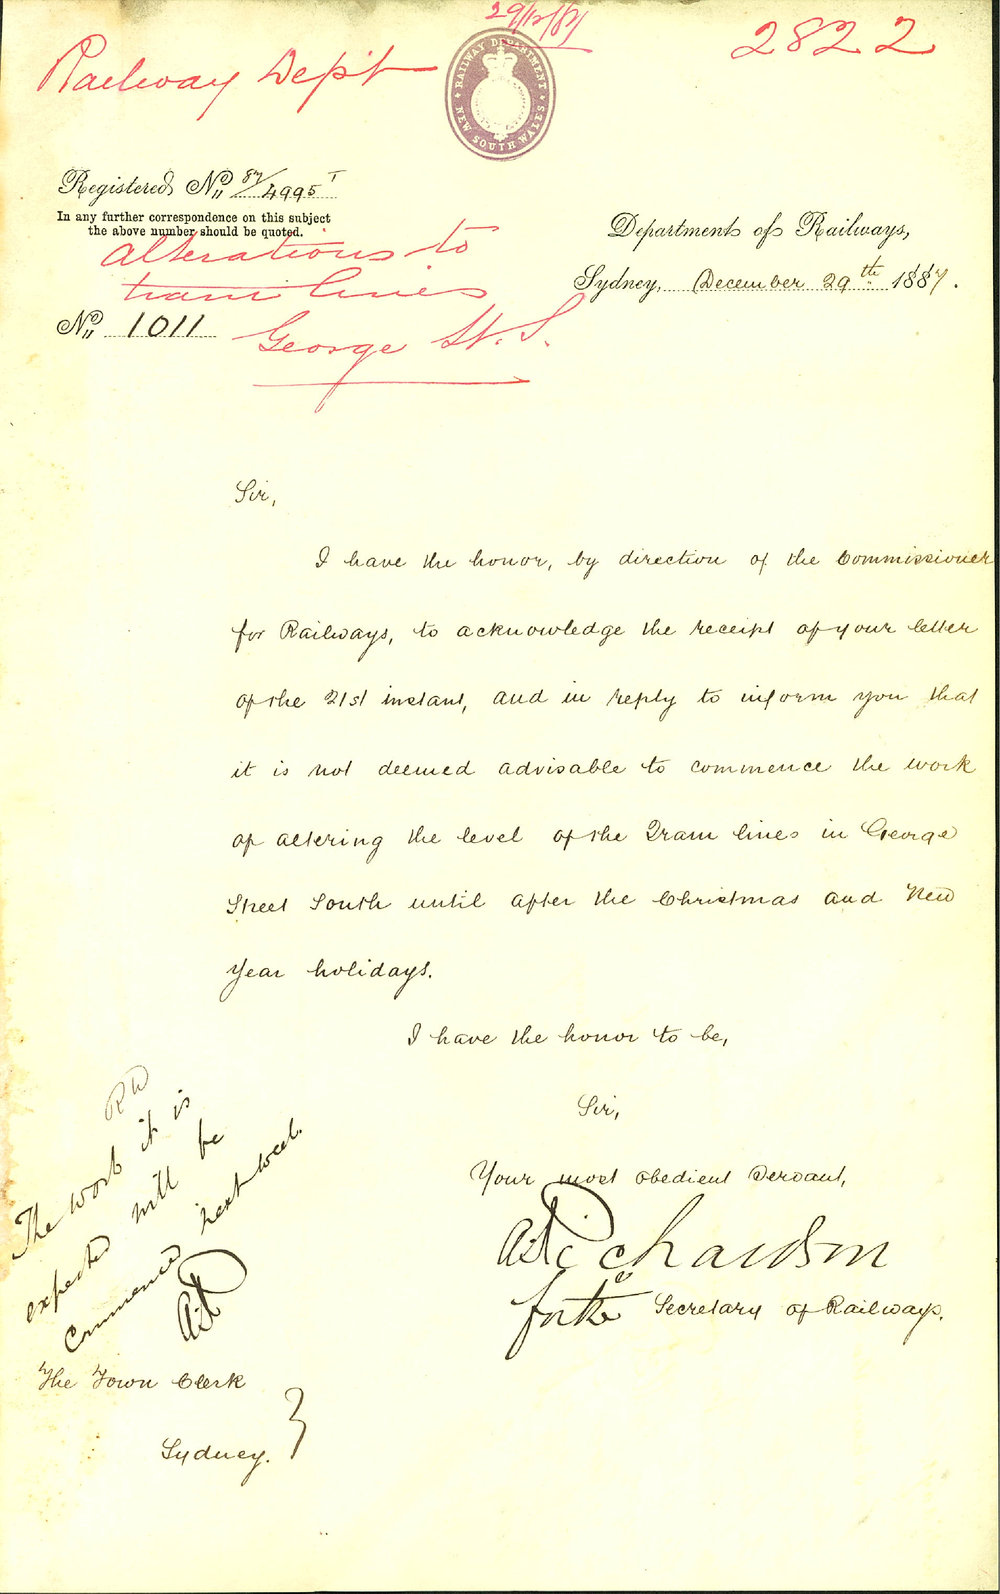 29/12/87
Railway Dept
2822
RAILWAY DEPARTMENT
NEW SOUTH WALES
Registered No. 87/4995 T
In any further correspondence on this subject
the above number should be quoted.
Department of Railways,
Sydney, December 29th 1887.
alterations to
tram lines
George St. S.
No. 1011
Sir,
I have the honor, by direction of the Commissioner
for Railways, to acknowledge the receipt of your letter
of the 21st instant, and in reply to inform you that
it is not deemed advisable to commence the work
of altering the level of the Tram lines in George
Street South until after the Christmas and New
Year holidays.
I have the honor to be,
Sir,
Your most obedient Servant,
Richardson
for the Secretary of Railways.
The work it is
expected will be
commenced next week.
The Town Clerk
Sydney.